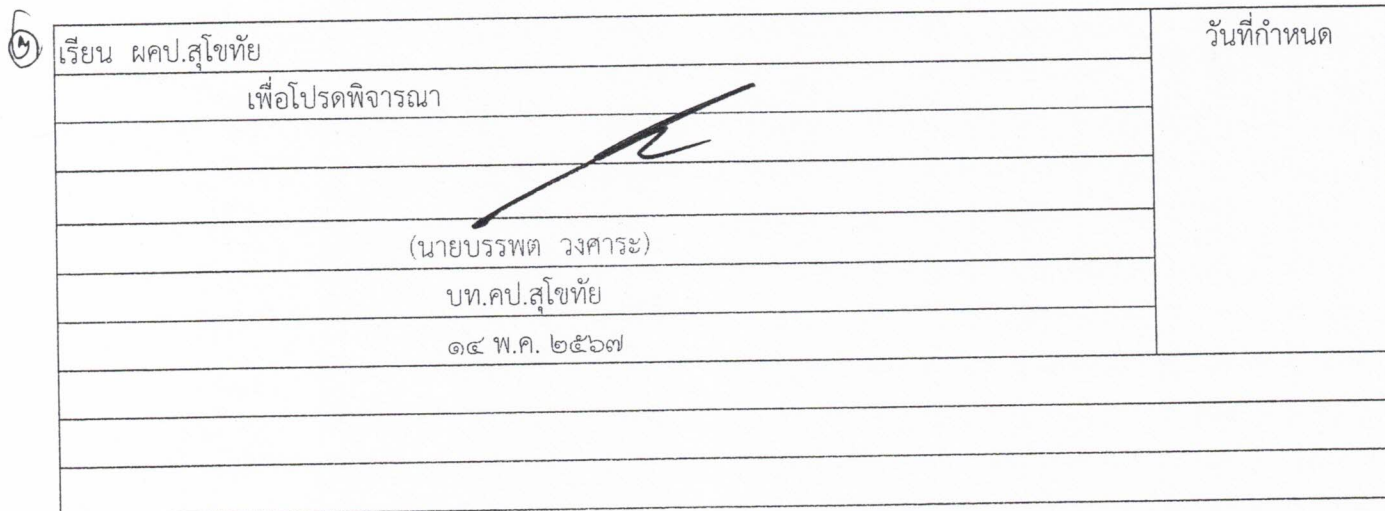 เรียน ผคป.สุโขทัย
วันที่กำหนด
เพื่อโปรดพิจารณา
(นายบรรพต วงศาระ)
บท.คป.สุโขทัย
๑๔ พ.ค. ๒๕๖๗